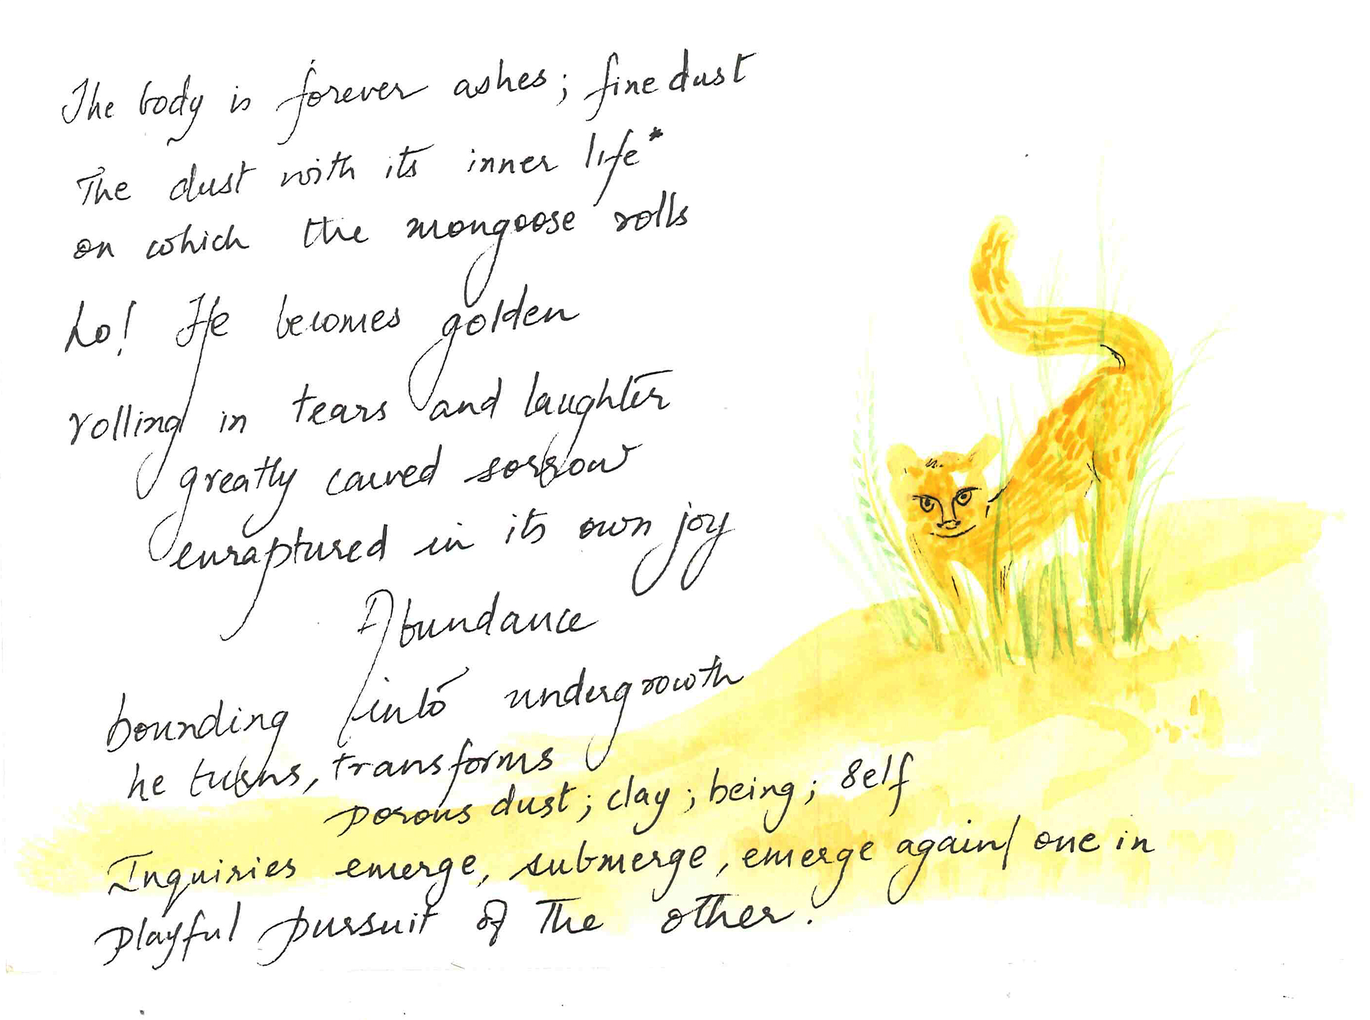 The body is forever ashes; fine dust
The dust with its inner life*
on which the mongoose rolls
Lo! He becomes golden
rolling in tears and laughter
greatly caved sorrow
enraptured in its own joy
Abundance
bounding into undergrowth
he turns, transforms
porous dust; clay; being; Self
Inquiries emerge, submerge, emerge again/ one in
playful pursuit of The other.